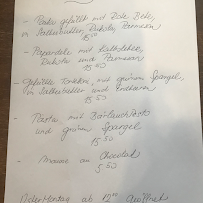 - Pasta gefüllt mit Rote Bete,
in Salbeibutter, Rukola, Parmesan
15.50
- Papardelle mit Kalbsleber,
Rukola und Parmesan
15.50
- Gefüllte Tortelloni, mit grünem Spargel,
in Salbeibutter und
15.50
- Pasta mit Bärlauchpesto
und grünem Spargel
15.50
- Mousse au Chocolat
5.50
Ostermontag ab 12 geöffnet